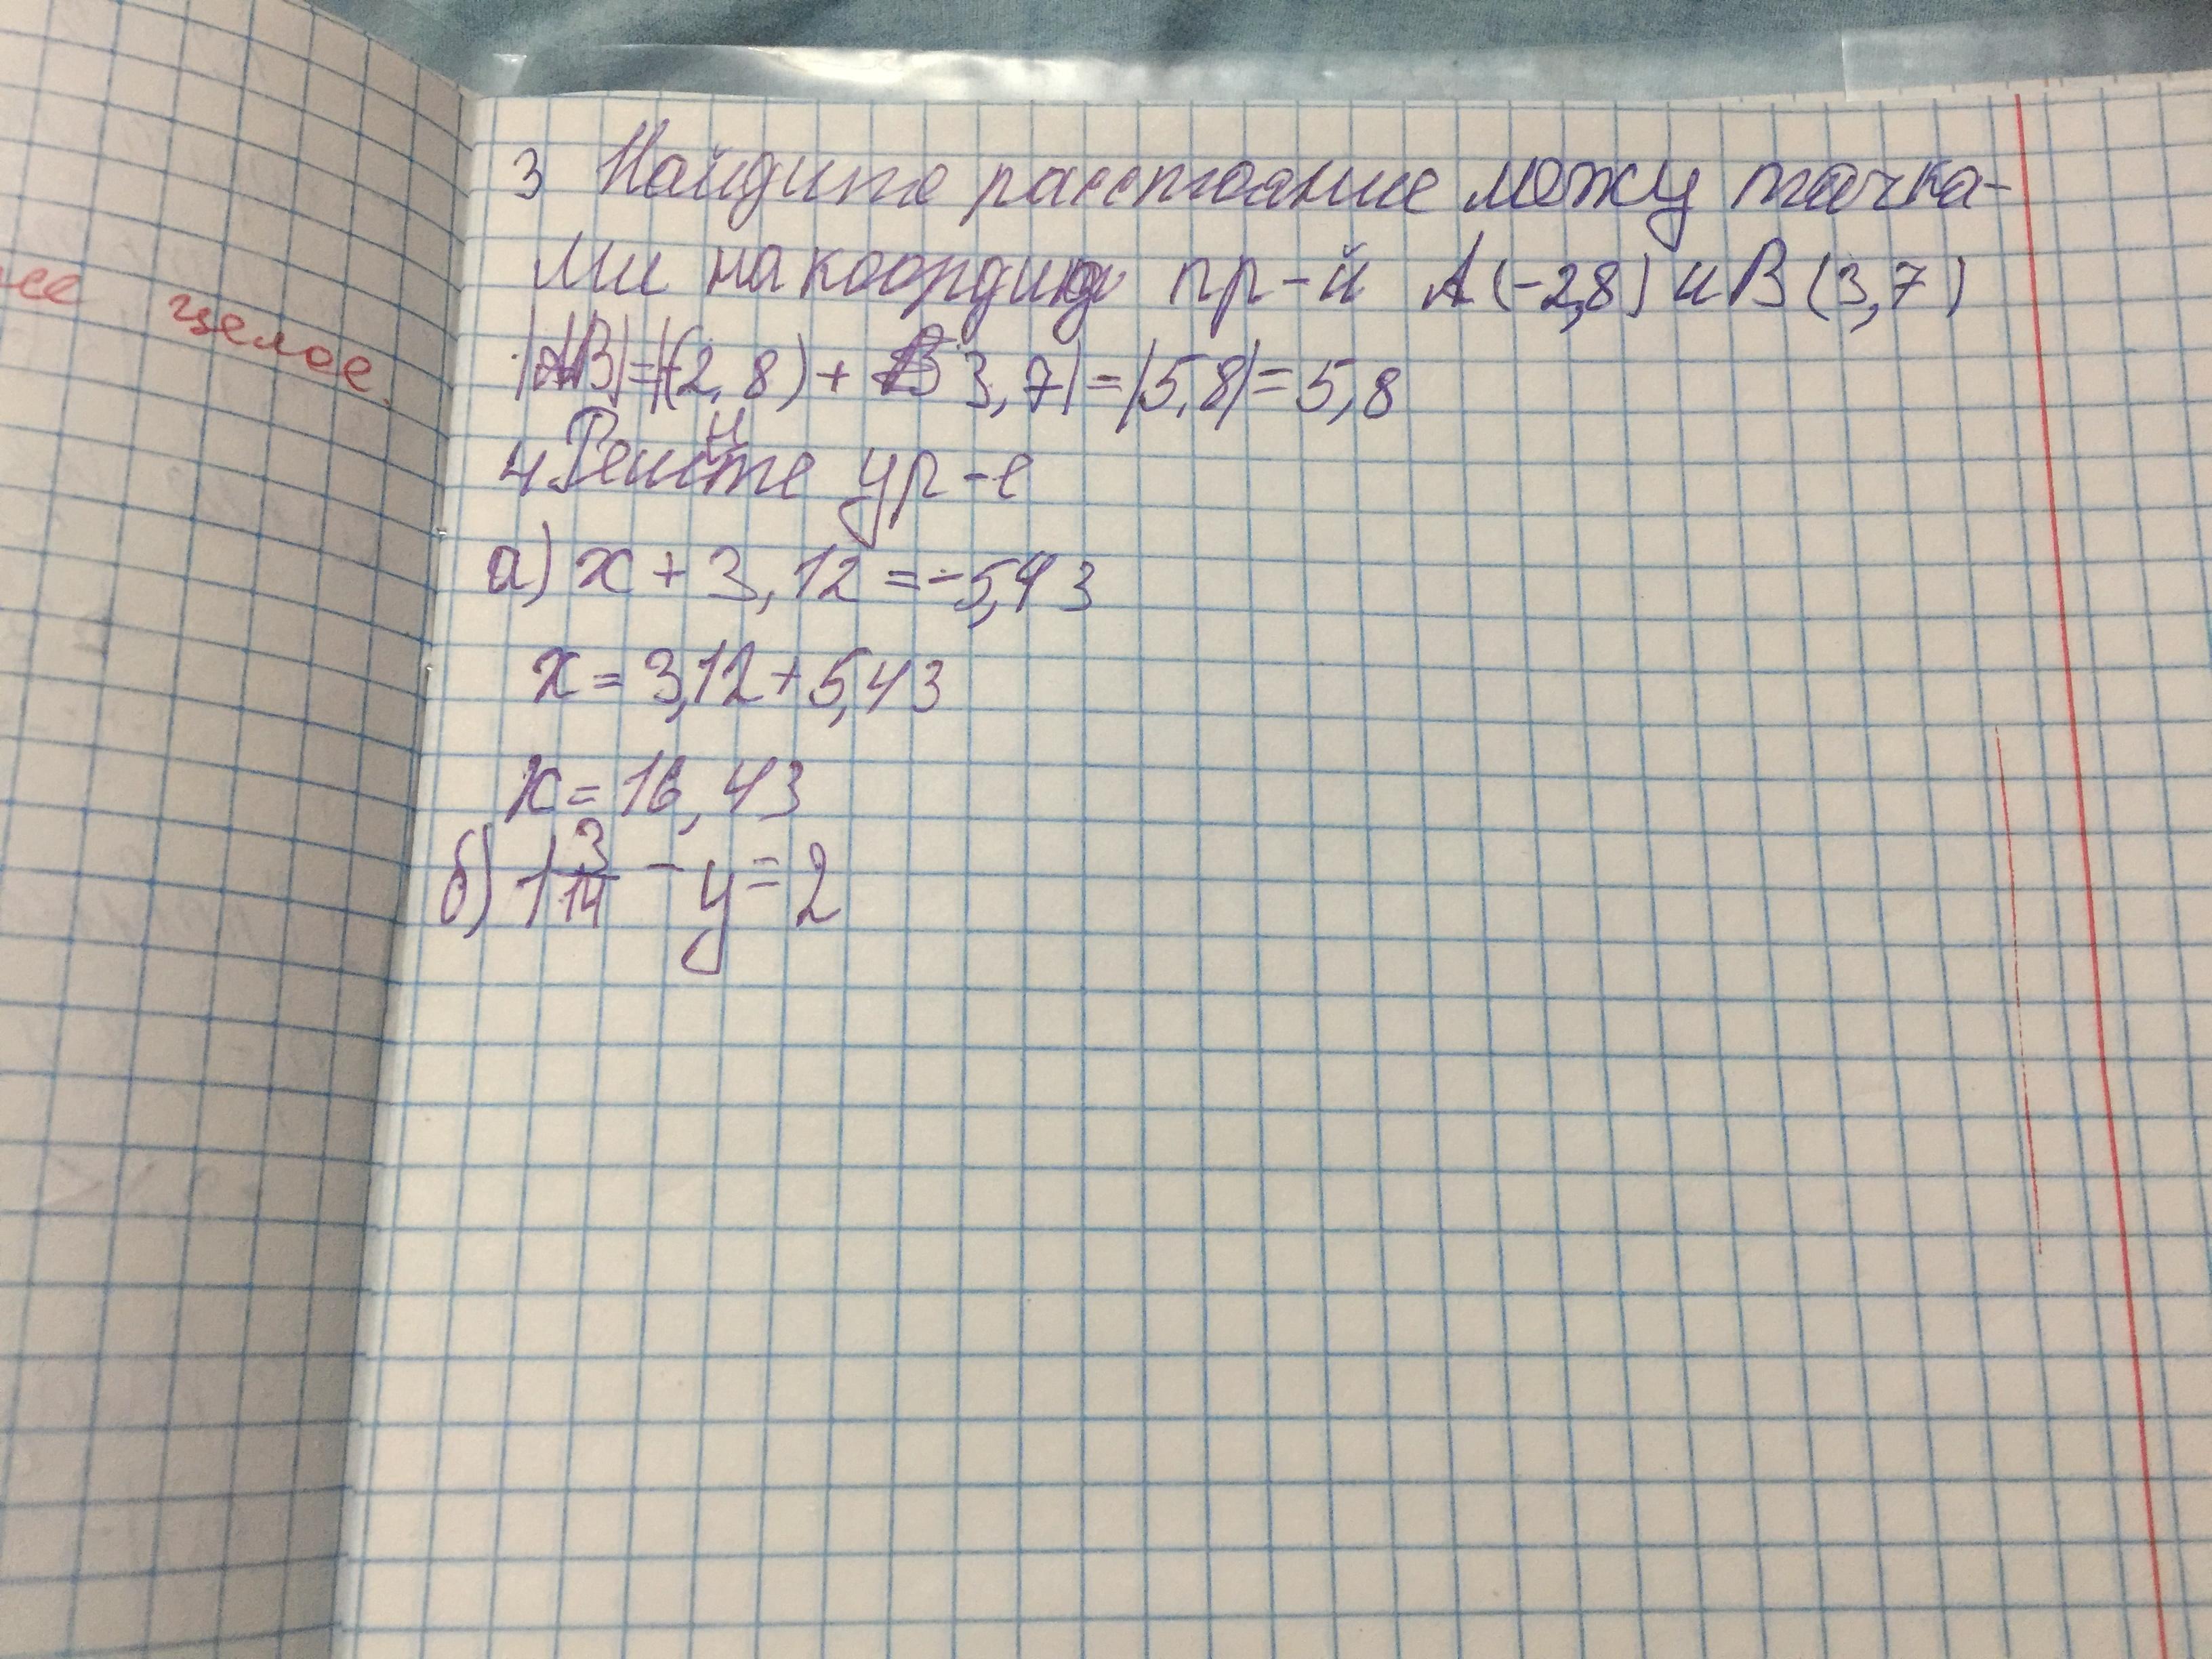 ее целое.
3 Найдите расстояние можу точка-
ми на координ пр-й А(-2,8) и В(3,7)
|АВ|=|(-2,8)+ 3,7|=|5,8|=5,8
4. Решите ур-е
а) x + 3,12 =-5,43
x = 3,12+5,43
x = 16,43
б) 1 3/14 - y = 2